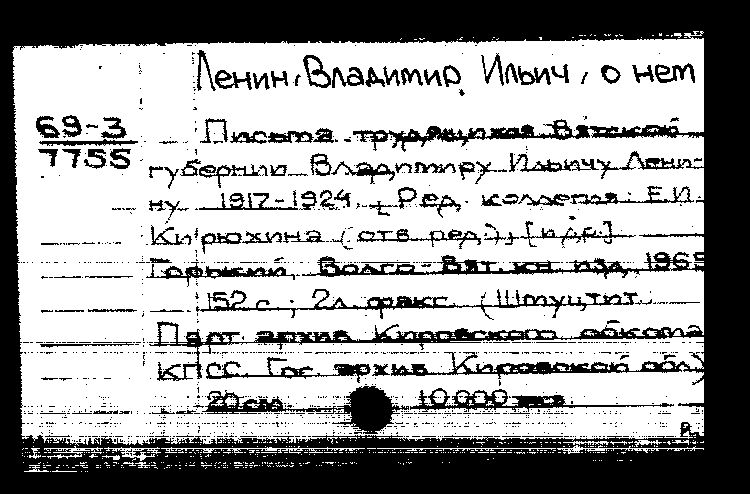 Ленин, Владимир Ильич, о нем
69-3
7755
Письма трудящихся Вятской
губернии Владимиру Ильичу Лени-
ну 1917-1924. [Ред. коллегия: Е.И.
Кирюхина (отв. ред.), [и др.]
Горький, Волго-Вят. кн. изд., 1969
152 с.; 2 л. факс. (Шмуцтит.:
Парт. архив Кировского обкома
КПСС. Гос. архив Кировской обл.)
20 см 10 000 экз.